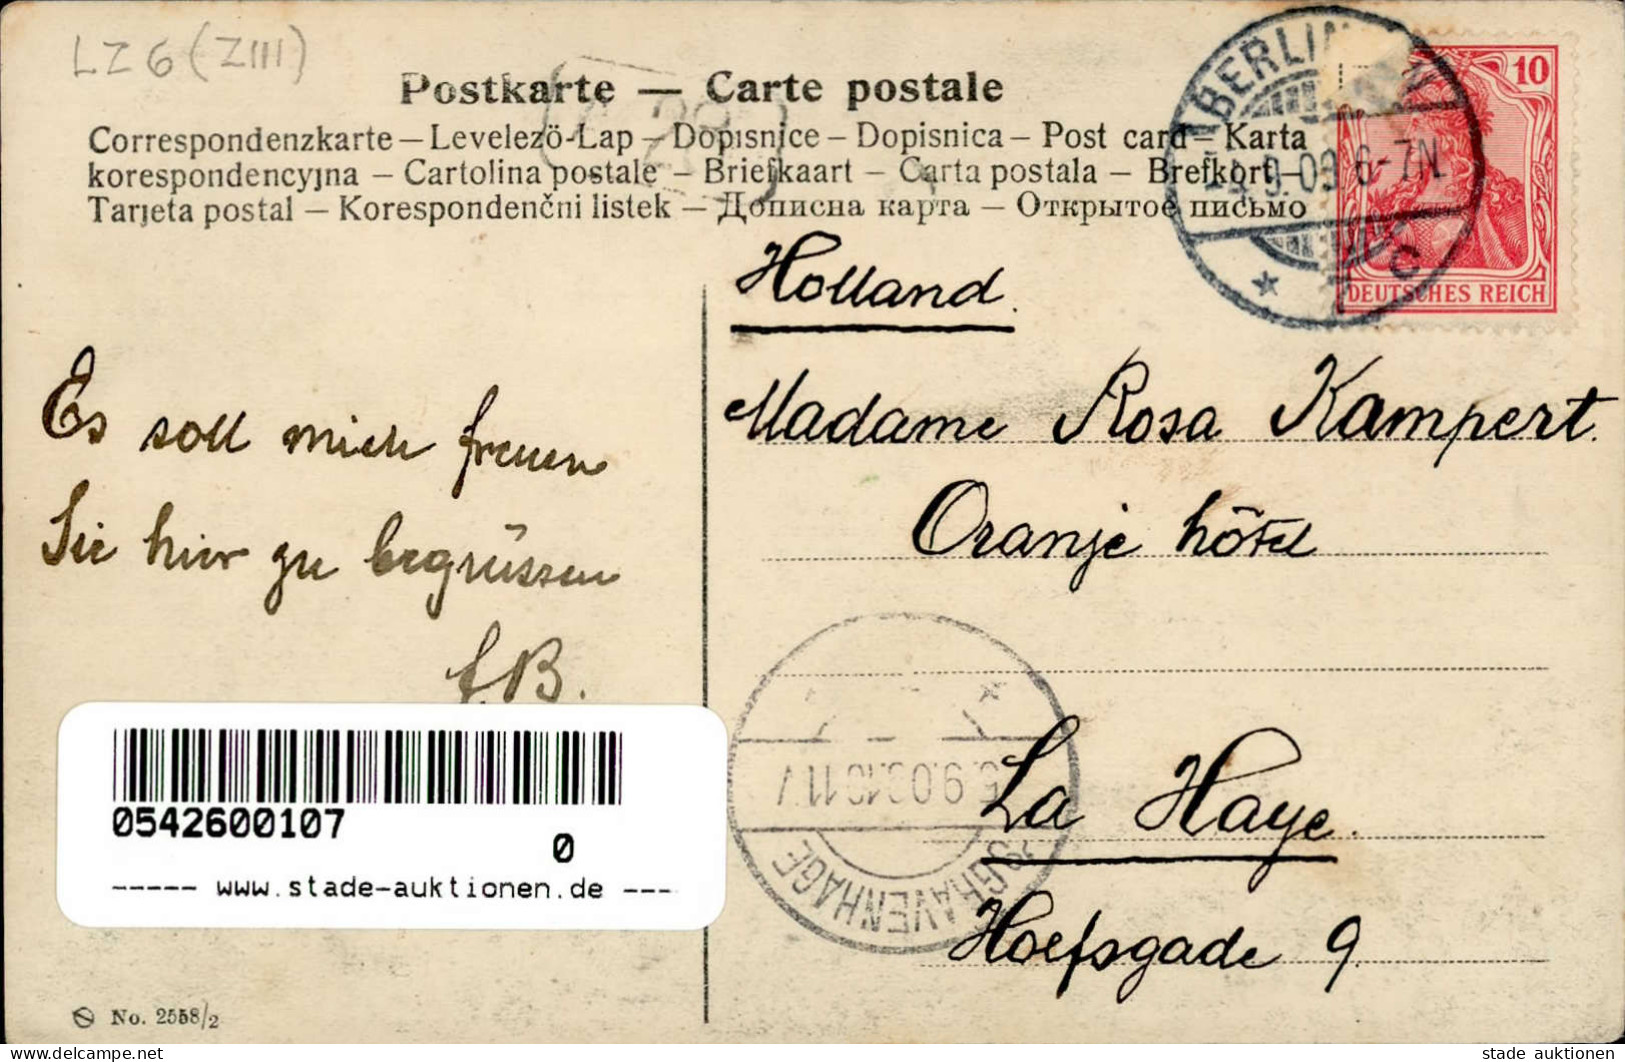 LZ6 (ZIII)
Postkarte — Carte postale
Correspondenzkarte – Levelezö-Lap – Dopisnice – Dopisnica – Post card – Karta
korespondencyjna – Cartolina postale – Briefkaart – Carta postala – Brefkort –
Tarjeta postal – Korespondenčni listek – Дописна карта – Открытое письмо
BERLIN
9.09 6-7N
C
10
DEUTSCHES REICH
Holland.
Madame Rosa Kampert.
Oranje hôtel
La Haye.
Hoefsgade 9
Es soll mich freuen
Sie hier zu begrüssen
f.B.
'S GRAVENHAGE
0542600107
0
----- www.stade-auktionen.de ---
No. 2558/2
delcampe.net
stade auktionen